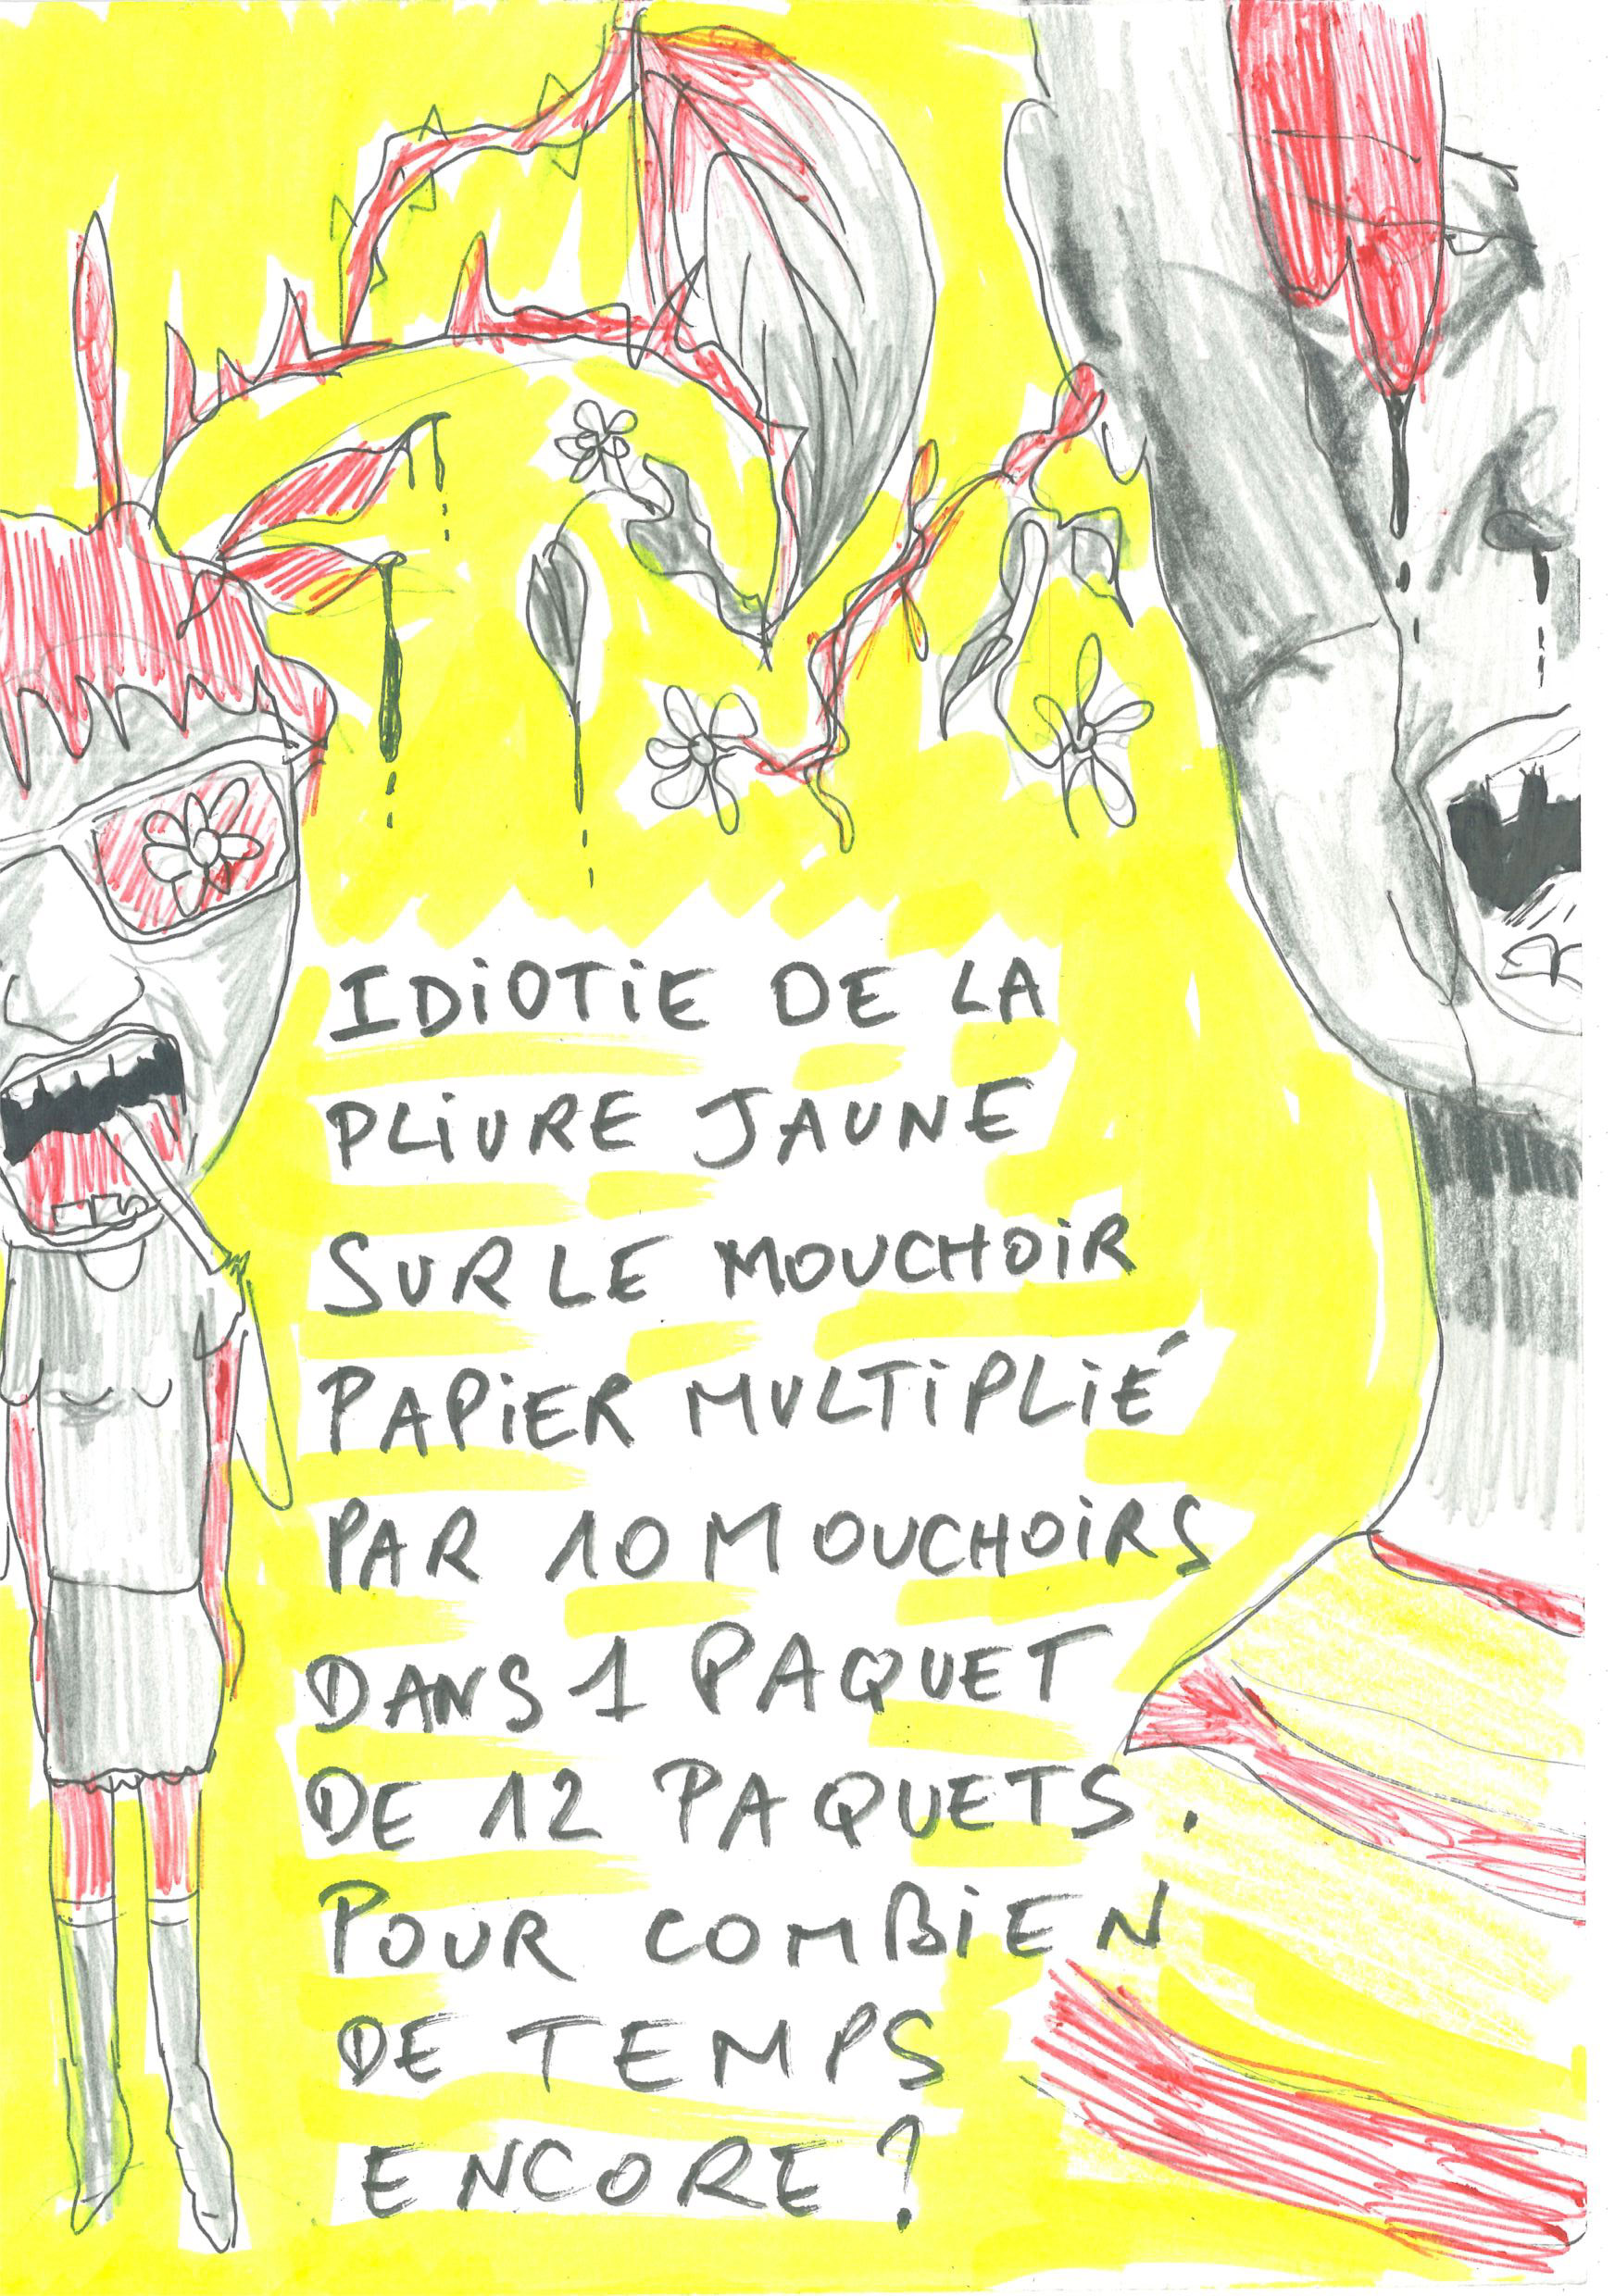 IDIOTIE DE LA
PLIURE JAUNE
SUR LE MOUCHOIR
PAPIER MULTIPLIÉ
PAR 10 MOUCHOIRS
DANS 1 PAQUET
DE 12 PAQUETS.
POUR COMBIEN
DE TEMPS
ENCORE ?